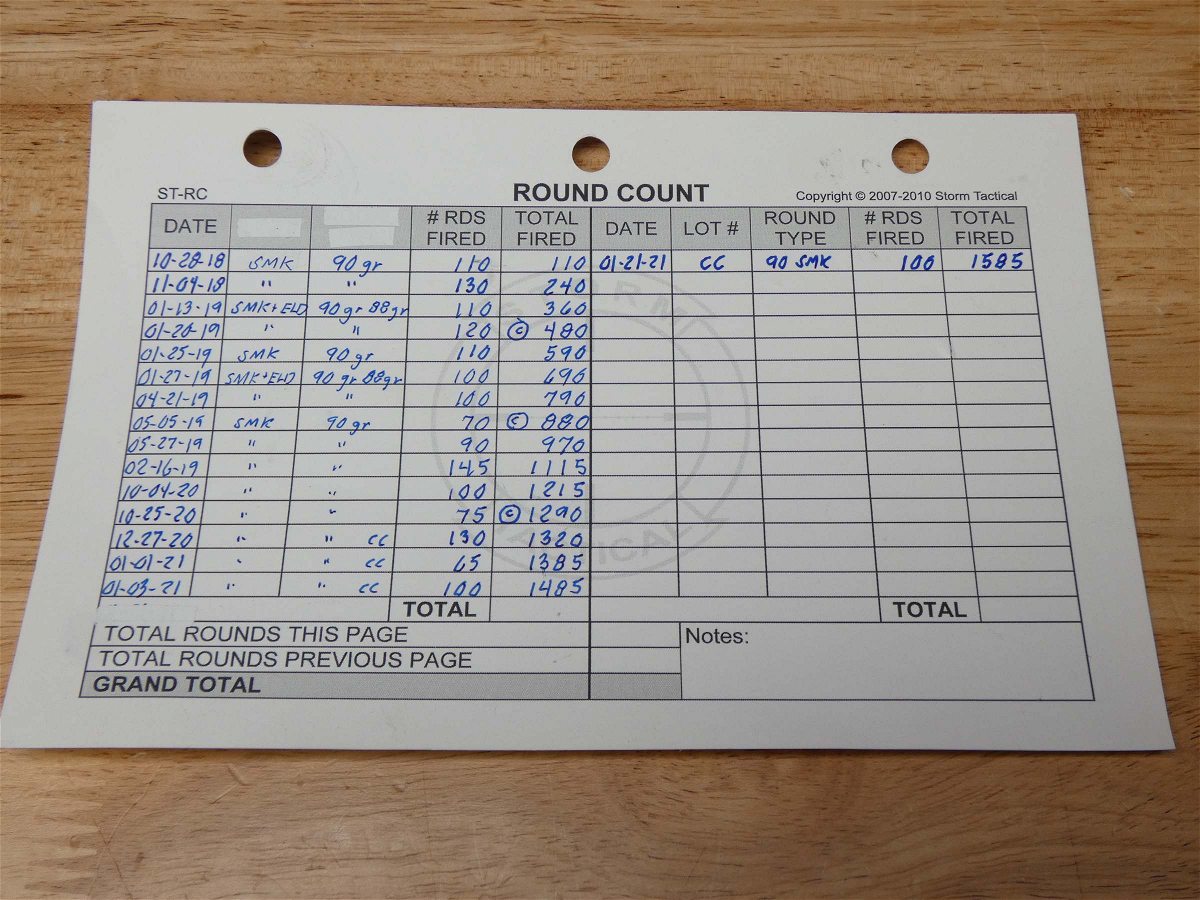 ST-RC ROUND COUNT Copyright © 2007-2010 Storm Tactical
DATE # RDS FIRED TOTAL FIRED DATE LOT # ROUND TYPE # RDS FIRED TOTAL FIRED
10-28-18 SMK 90 gr 110 110 01-21-21 CC 90 SMK 100 1585
11-04-18 " " 130 240
01-13-19 SMK+ELD 90 gr 88 gr 110 360
01-20-19 " " 120 © 480
01-25-19 SMK 90 gr 110 590
01-27-19 SMK+ELD 90 gr 88 gr 100 690
04-21-19 " " 100 790
05-05-19 SMK 90 gr 70 © 880
05-27-19 " " 90 970
02-16-19 " " 145 1115
10-04-20 " " 100 1215
10-25-20 " " 75 © 1290
12-27-20 " " CC 130 1320
01-01-21 " " CC 65 1385
01-03-21 " " CC 100 1485
TOTAL TOTAL
TOTAL ROUNDS THIS PAGE Notes:
TOTAL ROUNDS PREVIOUS PAGE
GRAND TOTAL
STORM
TACTICAL